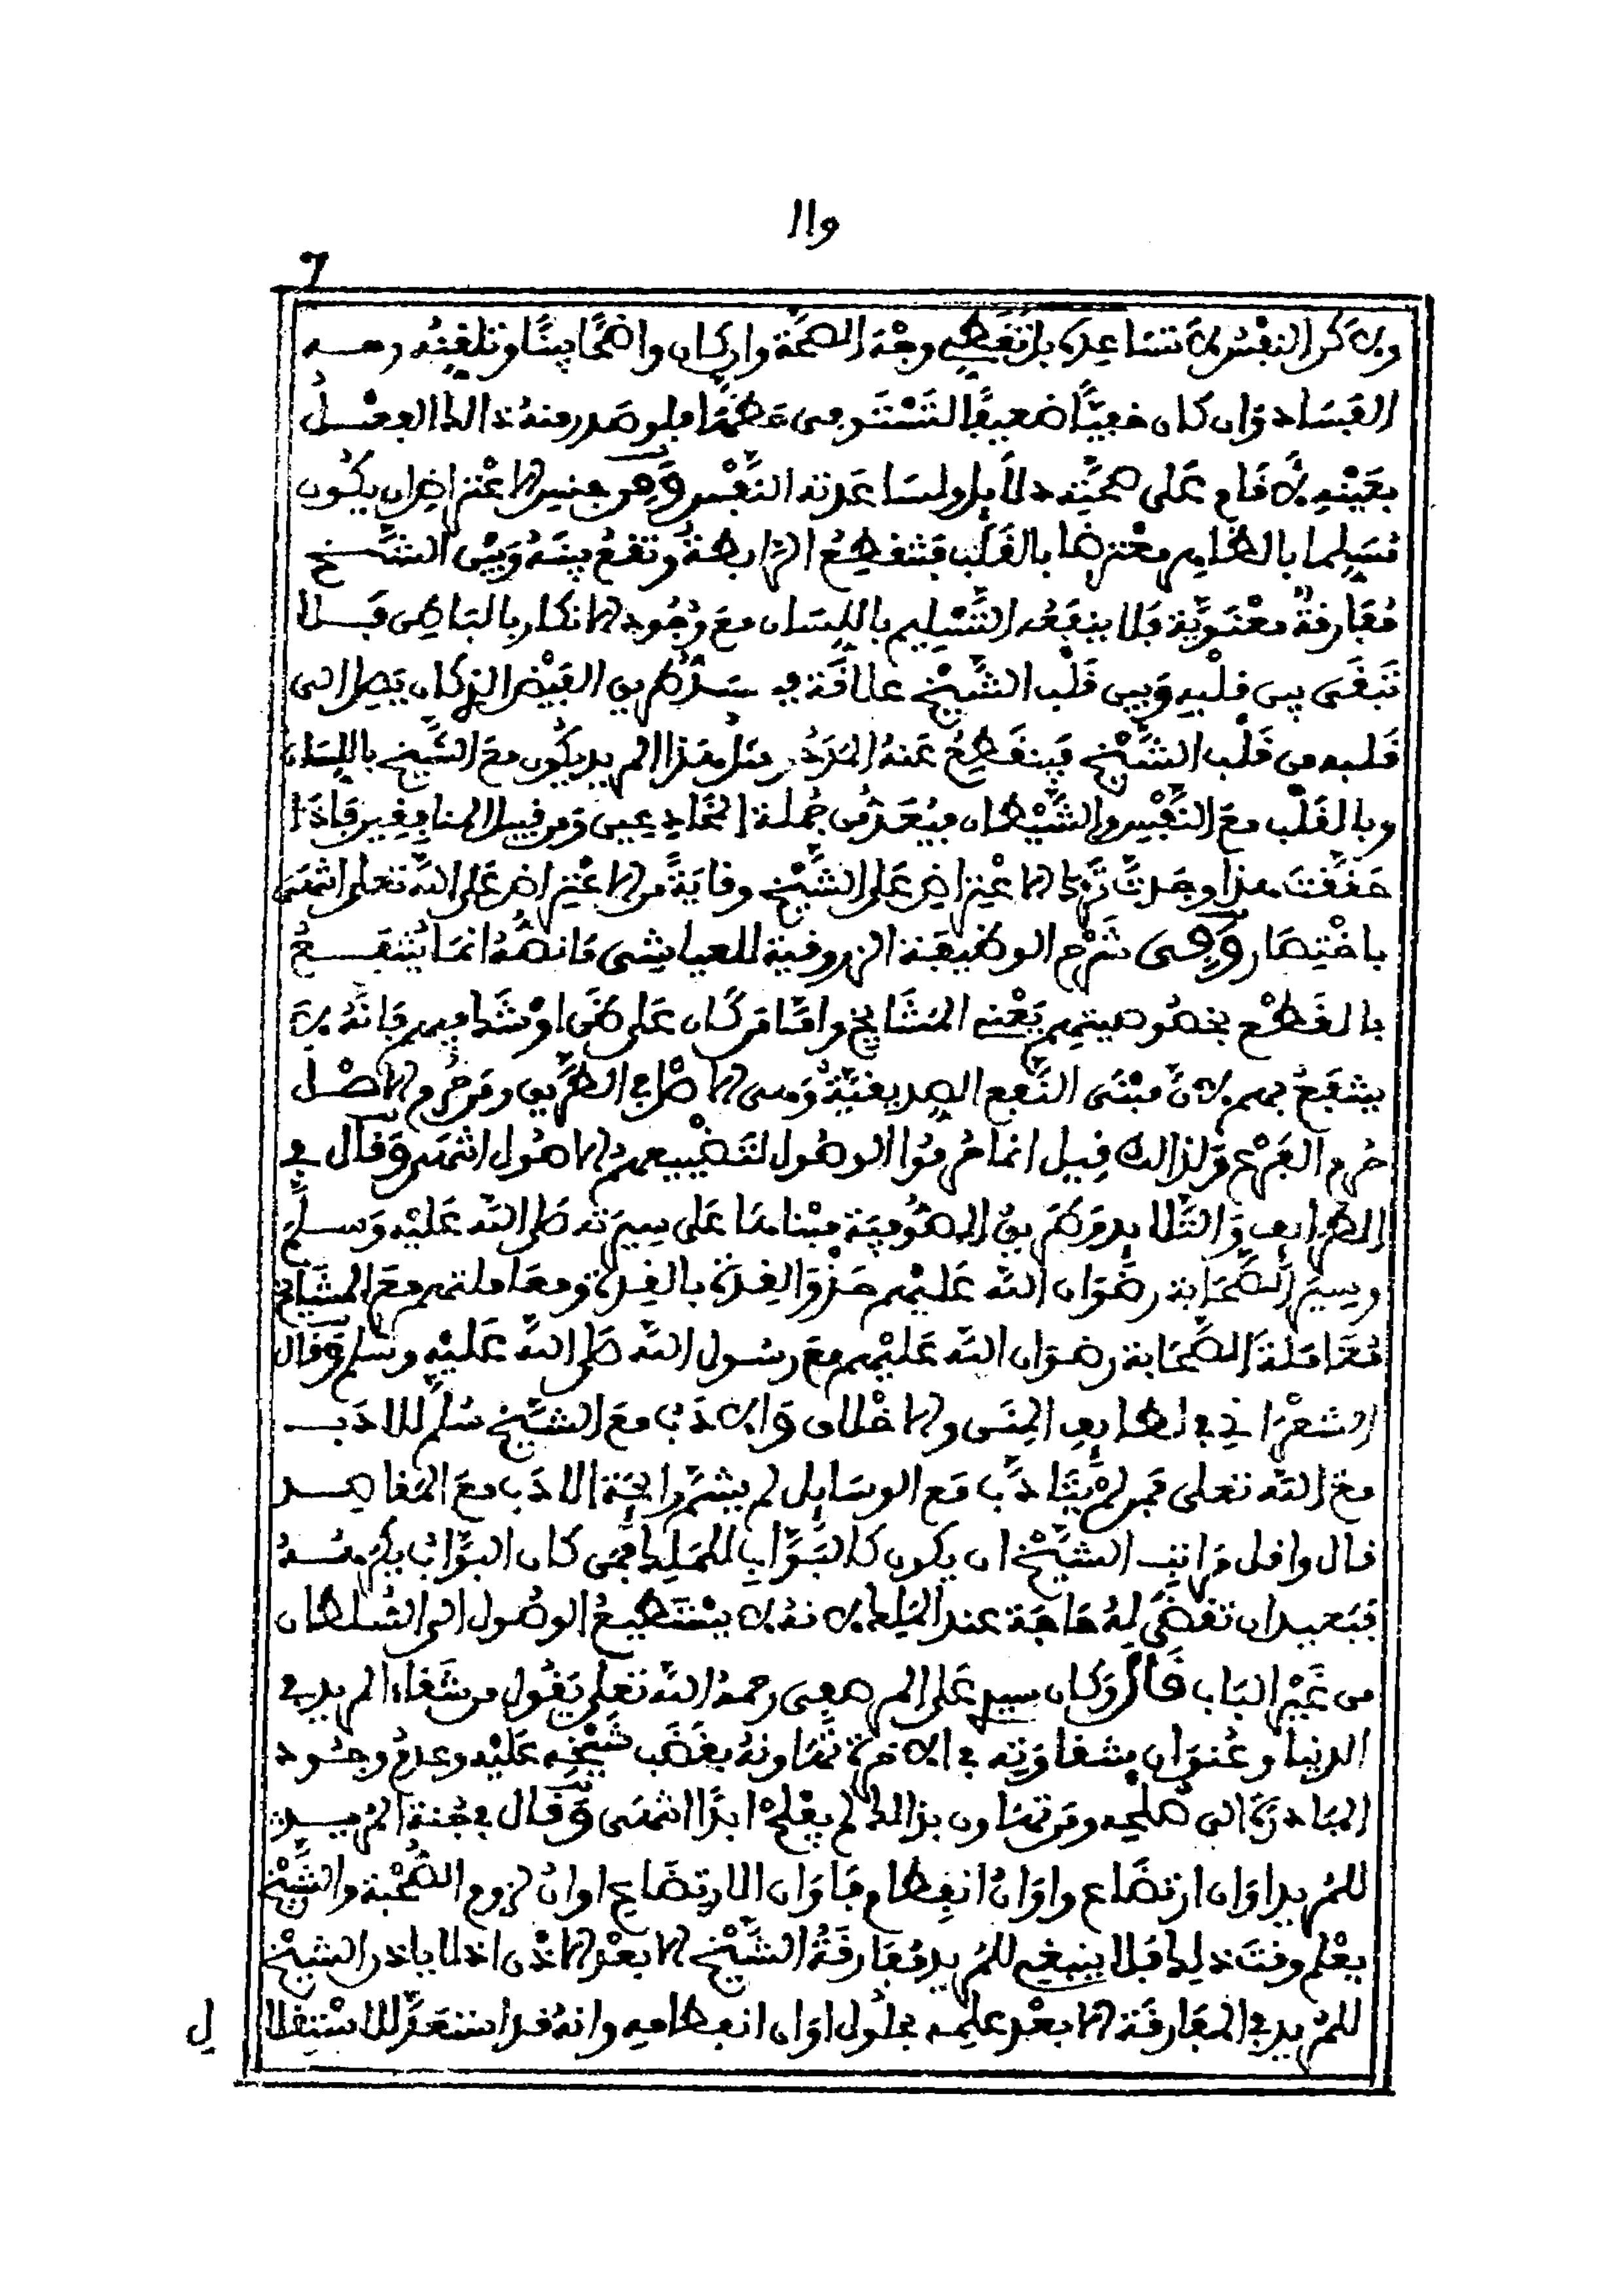 ١١٩
ولاكن النفس لا تساعدك بل تغطي وجه الصحة وان كان واضحا بينا وتلقنه وجه
الفساد وان كان خفيا ضعيفا لتستر من عظمها فلو صدر منه ذالك الفعل
بعينه لأقام على صحته دلايل ولساعدته النفس ومن جنس الاعتراض ان يكون
مسلما بالظاهر معترضا بالقلب فتنقطع الرابطة وتقع بينه وبين الشيخ
مفارقة معنوية فلا ينفعه التسليم باللسان مع وجود الانكار بالباطن فلا
تبقى بين قلبه وبين قلب الشيخ علاقة فيسد طريق الفيض الذي كان يصل الى
قلبه من قلب الشيخ فينقطع عنه المدد مثل هذا المريد يكون مع الشيخ باللسان
وبالقلب مع النفس والشيطان فيعد من جملة المخادعين ومن قبيل المنافقين فاذا
حققت هذا وجدت ترك الاعتراض على الشيخ وقاية من الاعتراض على الله تعلى انتهى
باختصار وفي شرح الوظيفة الزروقية للعياشي ما نصه انما ينتفع
بالقطع بخصوصيتهم يعني المشايخ واما من كان على ظن او شك فيهم فانه لا
ينتفع بهم لان مبنى النفع الصديقية وهي الاصل في الطريق ومن حرم الاصل
حرم الفرع ولذالك قيل انما حرموا الوصول لتضييعهم الاصول انتهى وقال في
الطرايف والتلايد وطريق الصوفية مبناها على سيرته صلى الله عليه وسلم
وسير الصحابة رضوان الله عليهم حذو القذة بالقذة ومعاملتهم مع المشايخ
معاملة الصحابة رضوان الله عليهم مع رسول الله صلى الله عليه وسلم وقال
الشعراني في لطايف المنن والاخلاق والادب مع الشيخ سلم للادب
مع الله تعلى فمن لم يتادب مع الوسايل لم يشم رايحة الادب مع المقاصد
قال واقل مراتب الشيخ ان يكون كالبواب للملك فمن كان البواب يكرهه
فبعيد ان تقضى له حاجة عند الملك لانه لا يستطيع الوصول الى السلطان
من غير الباب قال وكان سيدي علي المرصفي رحمه الله تعلى يقول من شقاء المريد في
الدنيا وعنوان شقاوته في الاخرة تهاونه بغضب شيخه عليه وعدم وجود
المبادرة الى صلحه ومن تهاون بذالك لم يفلح ابدا انتهى وقال في جنة المريد
للمريد اوان ارتضاع واوان انفطام فاوان الارتضاع اوان لزوم الصحبة والشيخ
يعلم وقت ذلك فلا ينبغي للمريد مفارقة الشيخ الا بعد الاذن اذ لا ياذن الشيخ
للمريد في المفارقة الا بعد علمه بحلول اوان انفطامه وانه قد استعد للاستقلا
ل